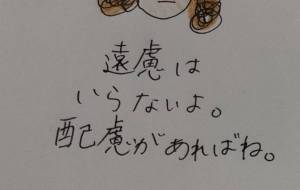 遠慮は
いらないよ。
配慮があればね。